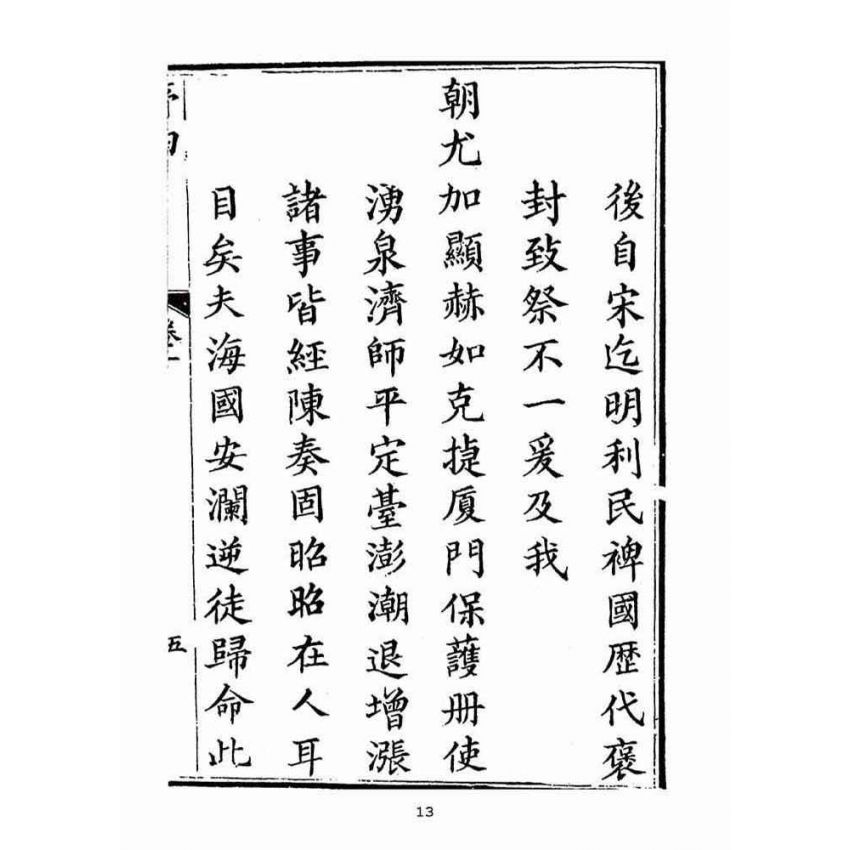 後自宋迄明利民裨國歷代褒
封致祭不一爰及我
朝尤加顯赫如克㨗厦門保護册使
湧泉濟師平定臺澎潮退增漲
諸事皆經陳奏固昭昭在人耳
目矣夫海國安瀾逆徒歸命此
五
13